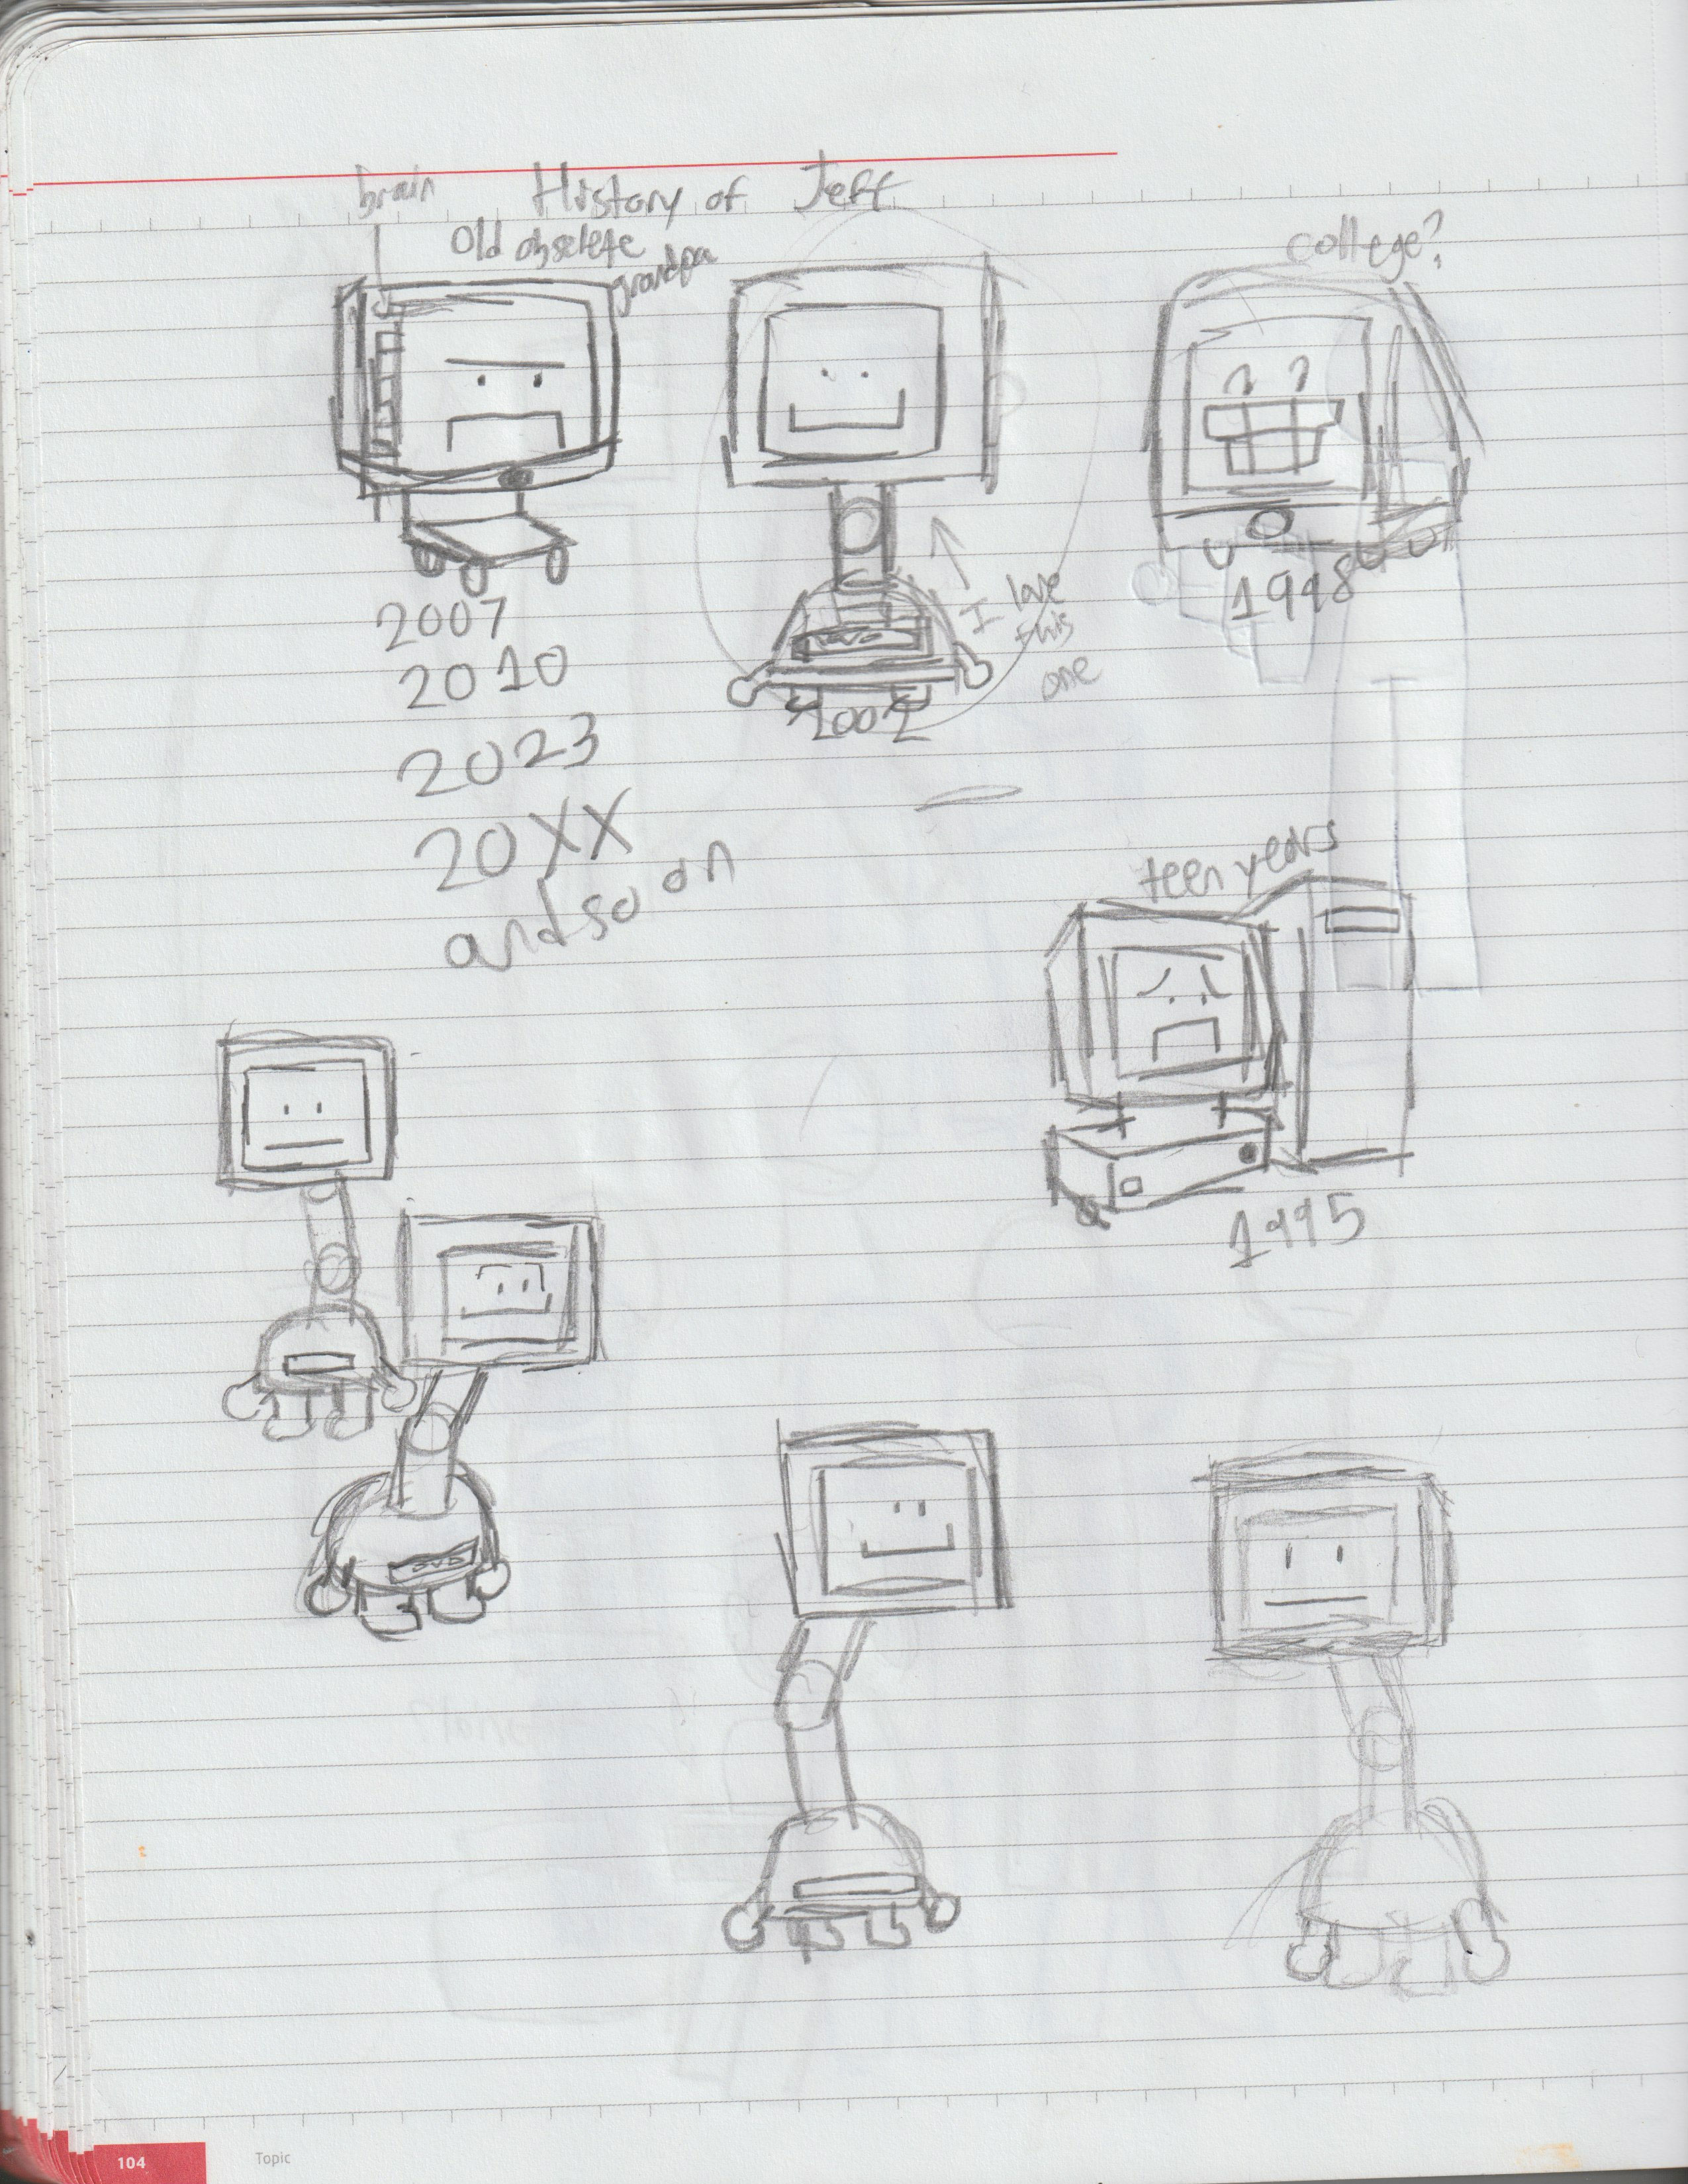 brain
History of Jeff
Old obselete
grandpa
college?
2007
2010
2023
20XX
and so on
I love
this
one
2002
1998
teen years
1995
DVD
104
Topic